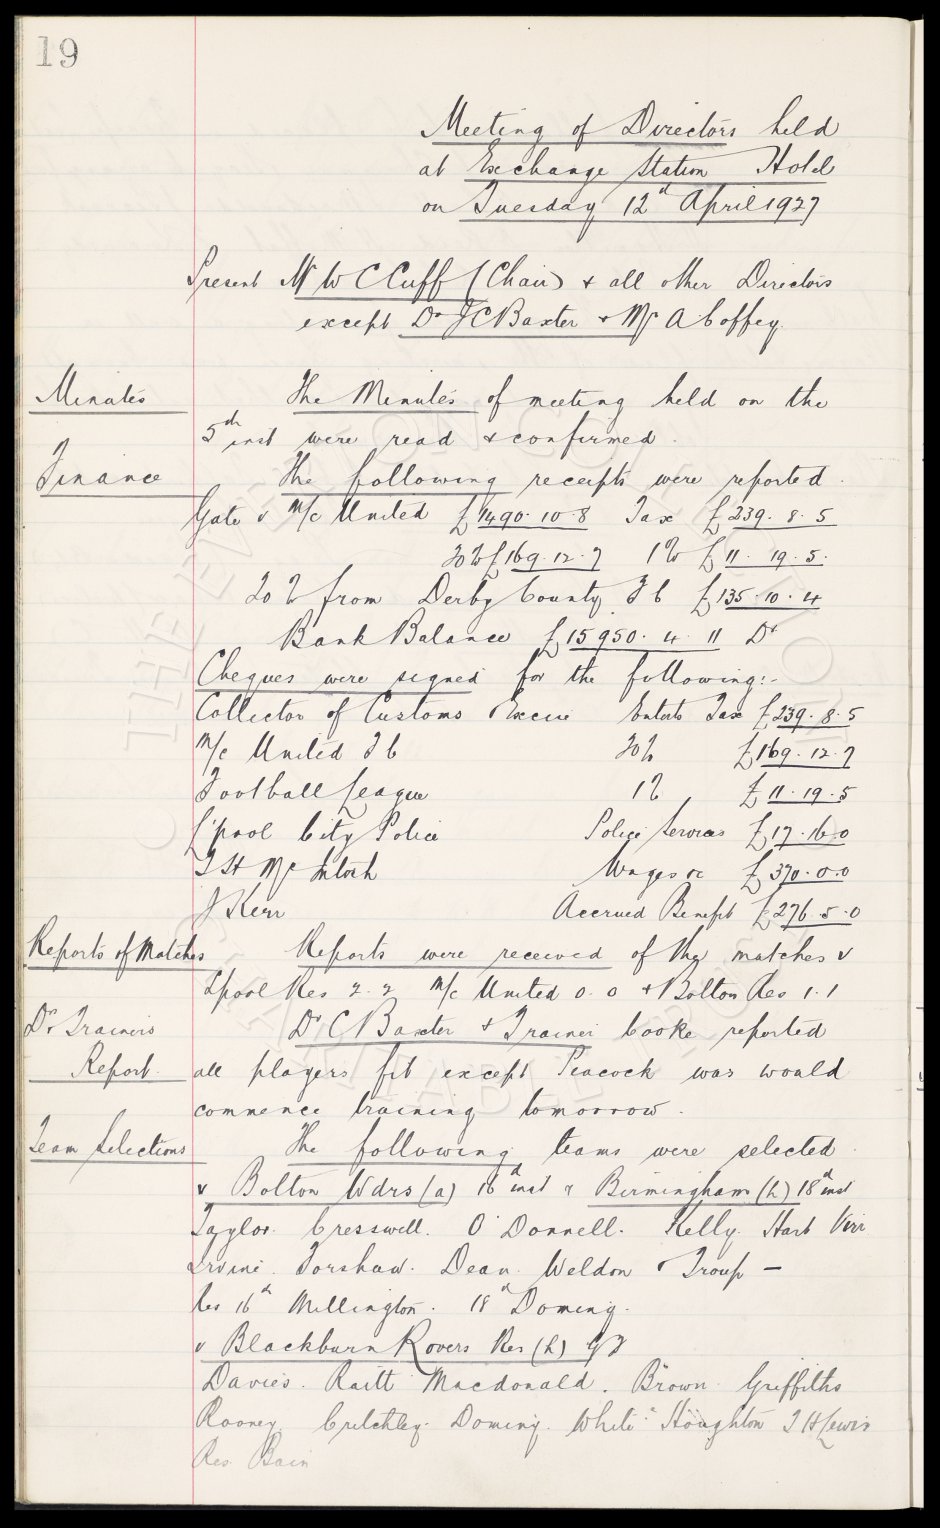 19
Meeting of Directors held
at Exchange Station Hotel
on Tuesday 12th April 1927
Present Mr W C Cuff (Chair) & all other Directors
except Dr J C Baxter & Mr A Coffey.
Minutes The Minutes of meeting held on the
5th inst were read & confirmed.
Finance The following receipts were reported.
Gate v M/c United £1490. 10. 8 Tax £239. 8. 5
20% £169. 12. 7 1% £11. 19. 5.
20% from Derby County F C £135. 10. 4
Bank Balance £15950. 4. 11 Dr
Cheques were signed for the following:-
Collector of Customs & Excise Enterts Tax £239. 8. 5
M/c United F C 20% £169. 12. 7
Football League 1% £11. 19. 5
L'pool City Police Police Services £17. 16. 0
T H McIntosh Wages &c £370. 0. 0
J Kerr Accrued Benefit £276. 5. 0
Reports of Matches Reports were received of the matches v
Lpool Res 2. 2 M/c United 0. 0 & Bolton Res 1. 1
Dr & Trainers Dr C Baxter & Trainer Cooke reported
Report. all players fit except Peacock was would
commence training tomorrow.
Team Selections The following teams were selected.
v Bolton Wdrs (a) 16th inst & Birmingham (h) 18th inst
Taylor. Cresswell. O'Donnell. Kelly. Hart Virr.
Irvine. Forshaw. Dean. Weldon & Troup —
Res 16th Millington. 18th Dominy.
v Blackburn Rovers Res (h) G F
Davies. Raitt Macdonald. Brown. Griffiths
Rooney Critchley. Dominy. White. Houghton T H Lewis
Res Bain
THE EVERTON COLLECTION
CHARITABLE TRUST